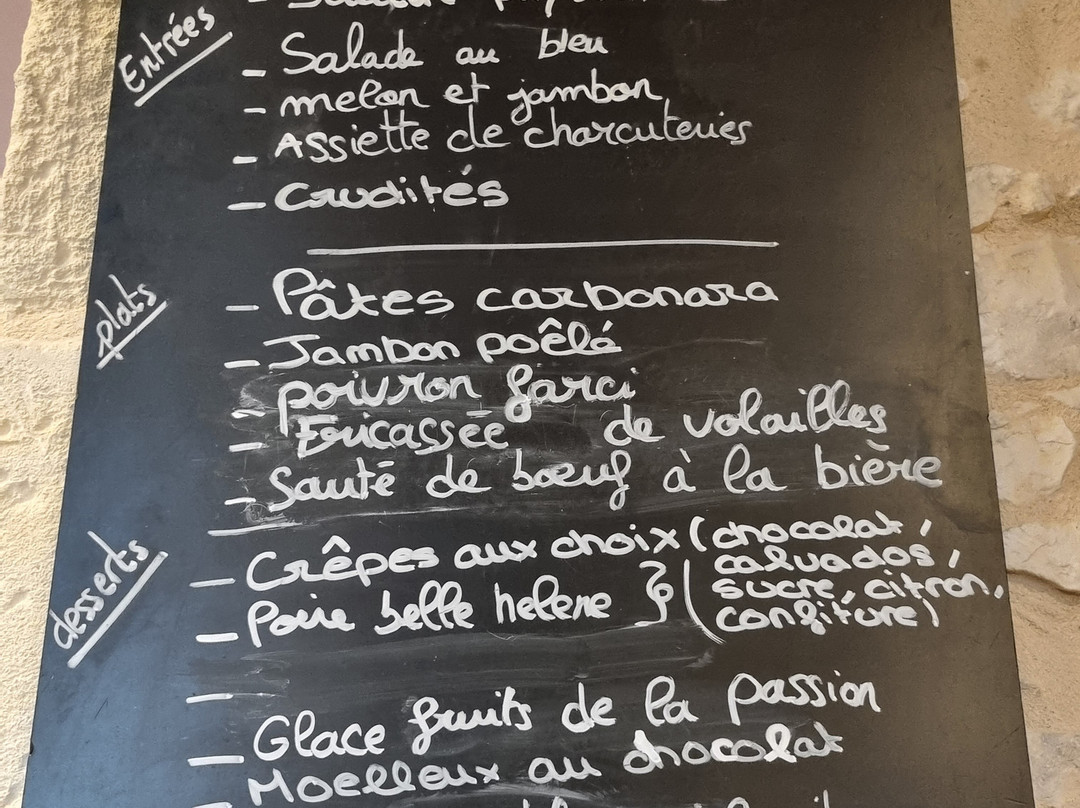 Entrées
- Salade au bleu
- melon et jambon
- Assiette de charcuteries
- Crudités
plats
- Pâtes carbonara
- Jambon poêlé
- poivron farci
- Fricassée de volailles
- Sauté de bœuf à la bière
desserts
- Crêpes aux choix (chocolat,
calvados,
sucre, citron,
confiture)
- Poire belle helene
-
- Glace fruits de la passion
- Moelleux au chocolat